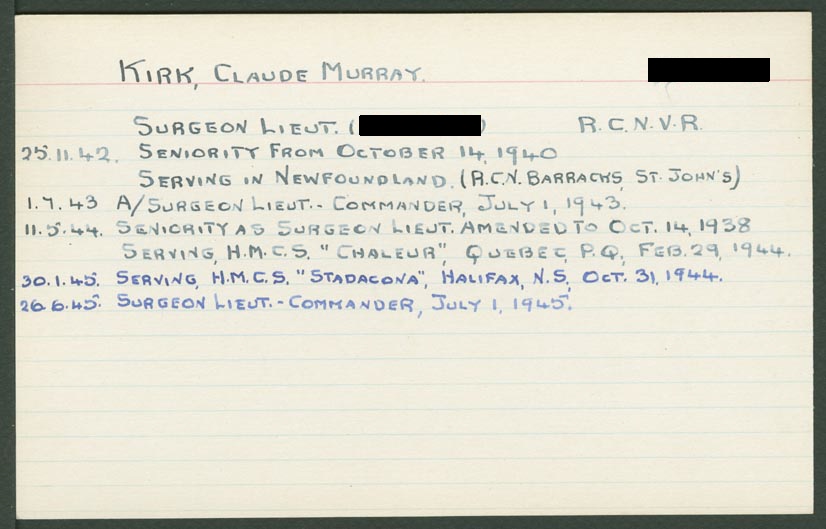 KIRK, CLAUDE MURRAY.
SURGEON LIEUT. ( ) R.C.N.V.R.
25.11.42. SENIORITY FROM OCTOBER 14, 1940
SERVING IN NEWFOUNDLAND. (R.C.N. BARRACKS, ST. JOHN'S)
1.7.43 A/SURGEON LIEUT.- COMMANDER, JULY 1, 1943.
11.5.44. SENIORITY AS SURGEON LIEUT. AMENDED TO OCT. 14, 1938
SERVING, H.M.C.S. "CHALEUR", QUEBEC, P.Q., FEB. 29, 1944.
30.1.45. SERVING, H.M.C.S. "STADACONA", HALIFAX, N.S., OCT. 31, 1944.
26.6.45. SURGEON LIEUT.- COMMANDER, JULY 1, 1945.